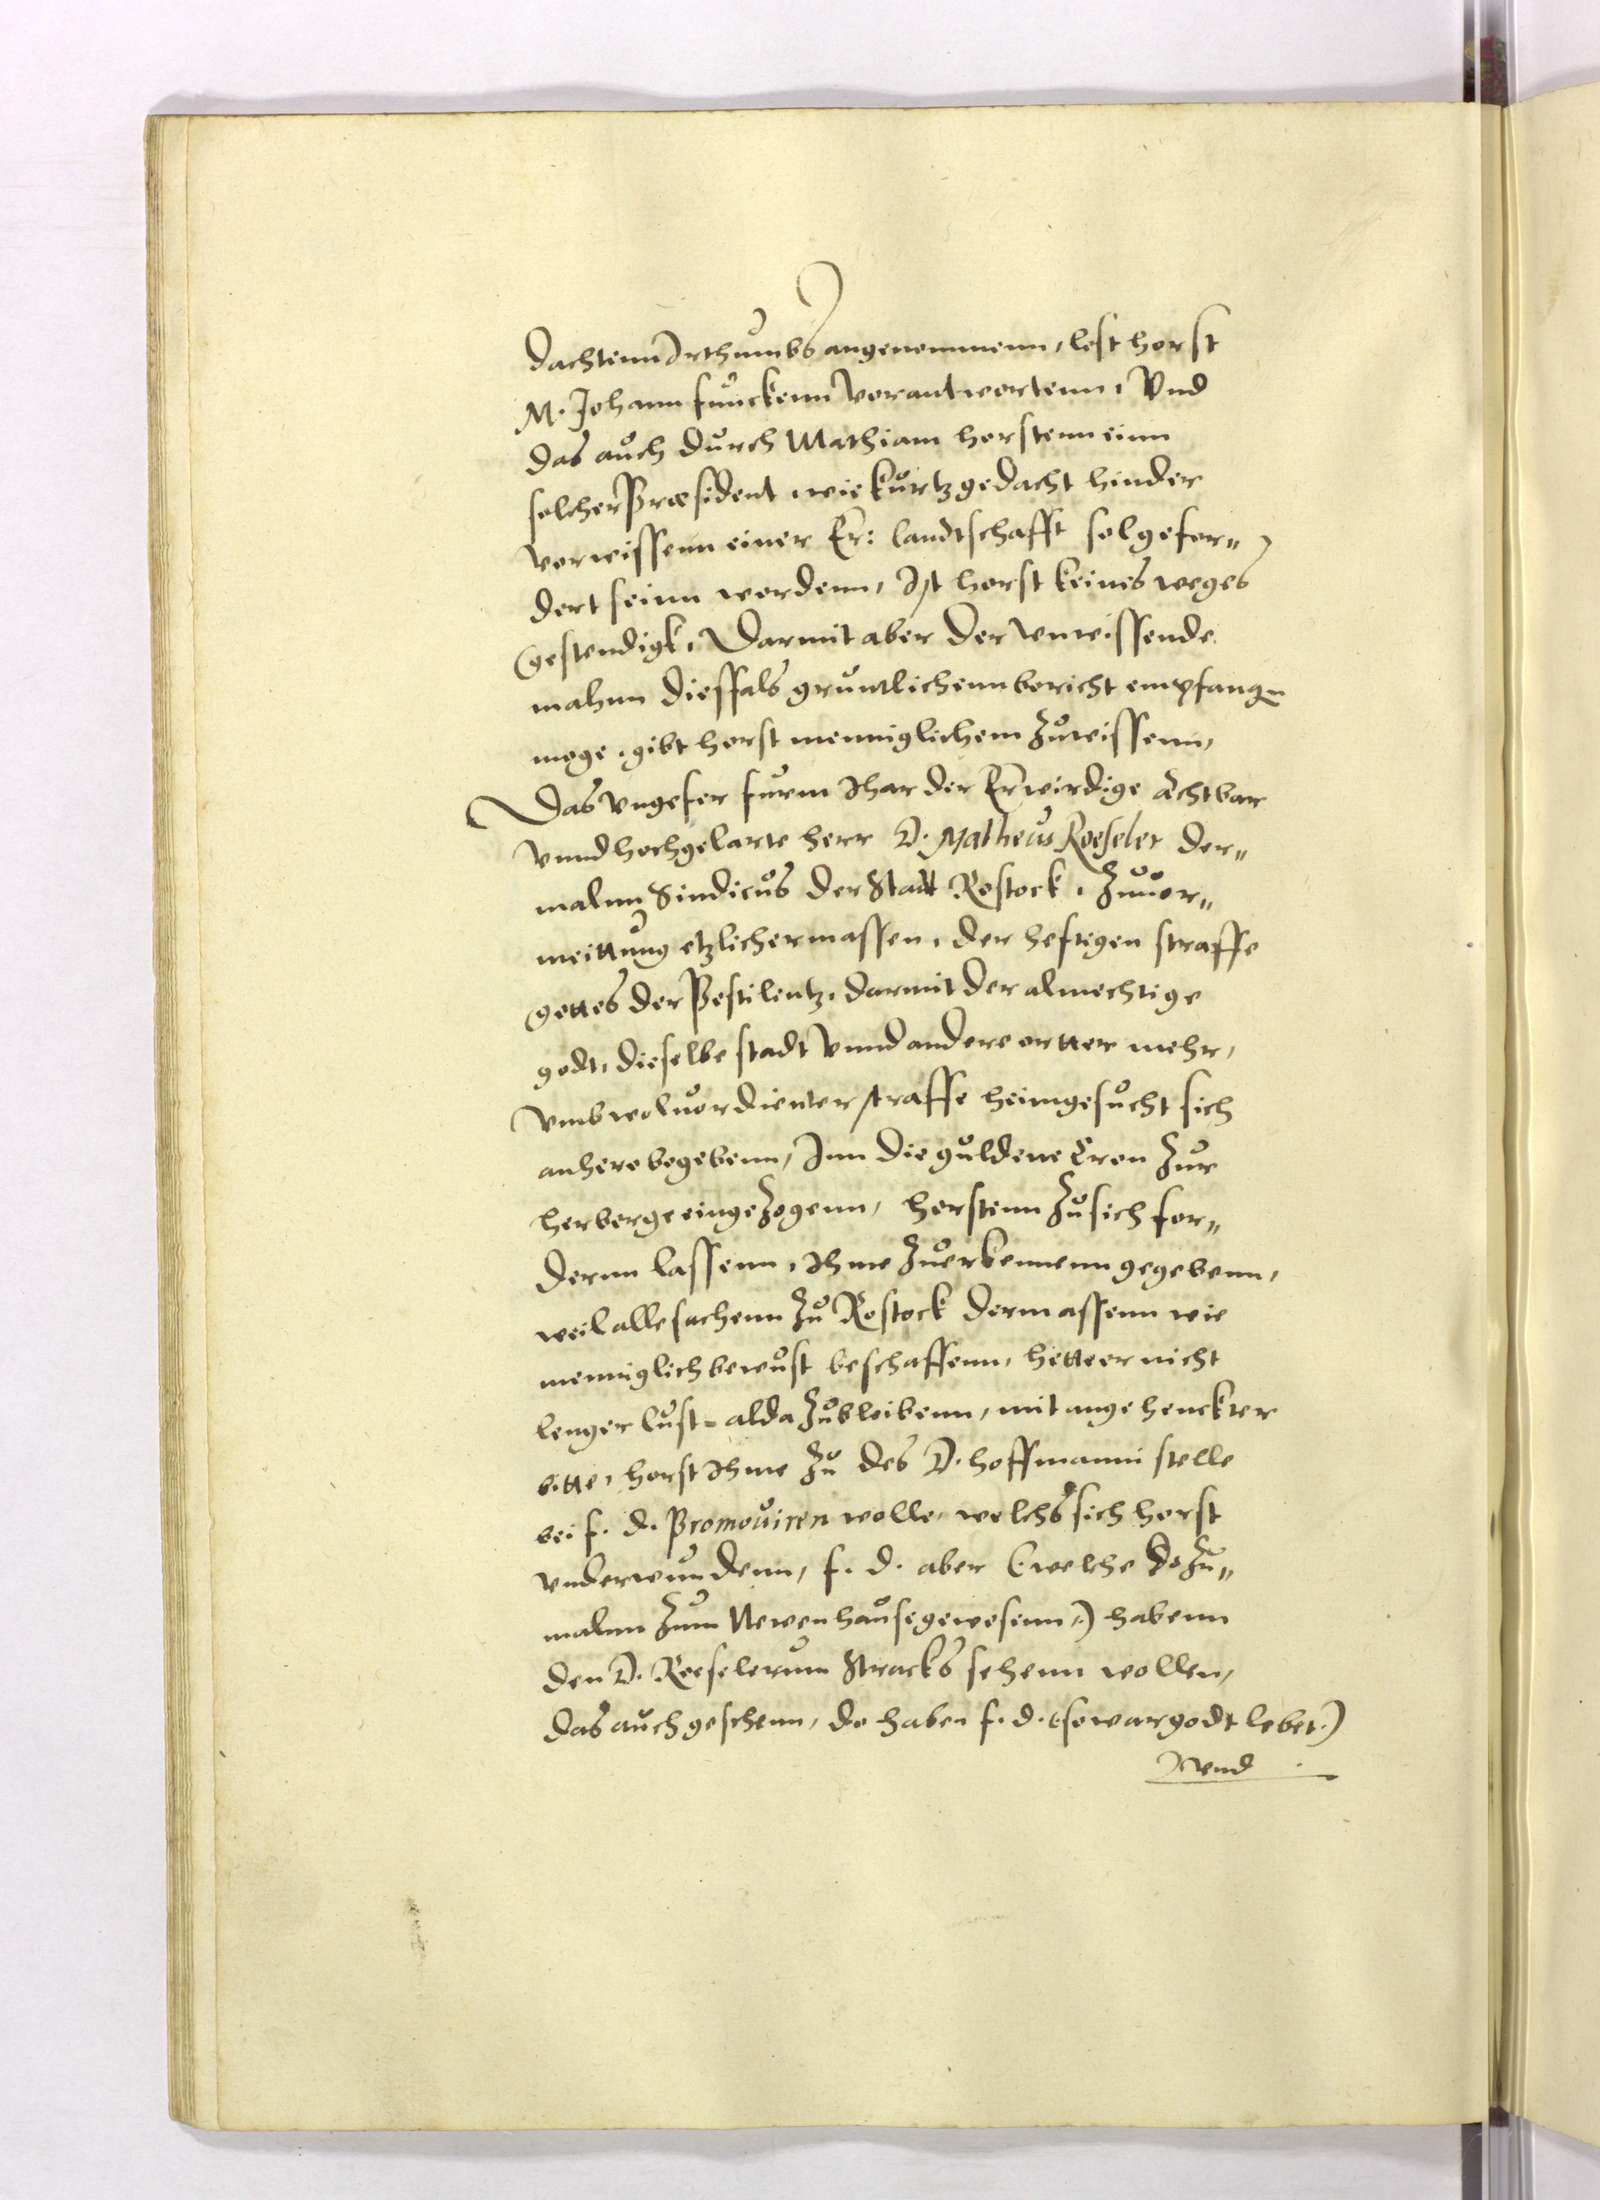 dachtenn Irthumbs angenommenn, lest horst
M. Johann funckenn verantwortenn, Vnd
das auch durch Mathiam horstenn einn
solcher Præsident, wie kurtz gedacht hinder
vorwissenn einer Er: landtschafft sol gefor„
dert seinn wordenn, Ist horst keines weges
gestendigk, Darmit aber der vnwissende
mahnn diessfals gruntlichenn bericht empfang̅
moge, gibt horst menniglichem zuwissenn,
Das vngefer furm Ihar der Erwirdige achtbar
vnnd hochgelarte herr D. Matheus Roeseler der„
malnn Sindicus der Stadt Rostock, zuuor„
meittung etzlichermassen, der heftigen straffe
gottes der Pestilentz, darmit der almechtige
godt, dieselbe stadt vnnd andere ortter mehr,
vmb woluordienter straffe heimgesucht sich
anhero begebenn, Inn die guldene Cron zur
herberge eingezogenn, horstenn zu sich for„
dernn lassenn, Ihme zuerkennenn gegebenn,
weil alle sachenn zu Rostock dermassenn wie
menniglich bewust beschaffenn, hette er nicht
lenger lust alda zubleibenn, mit angehenckter
bitte, horst Ihme zu des D. hoffmanni stelle
bei f. d. Promouiren wolle, welchs sich horst
vnderwundenn, f. d. aber (welche dozu„
malnn zum Newenhause gewesenn,) habenn
den D. Roeselerum stracks sehenn wollen,
das auch geschenn, do haben f. d. (so war godt lebet.)
vnd